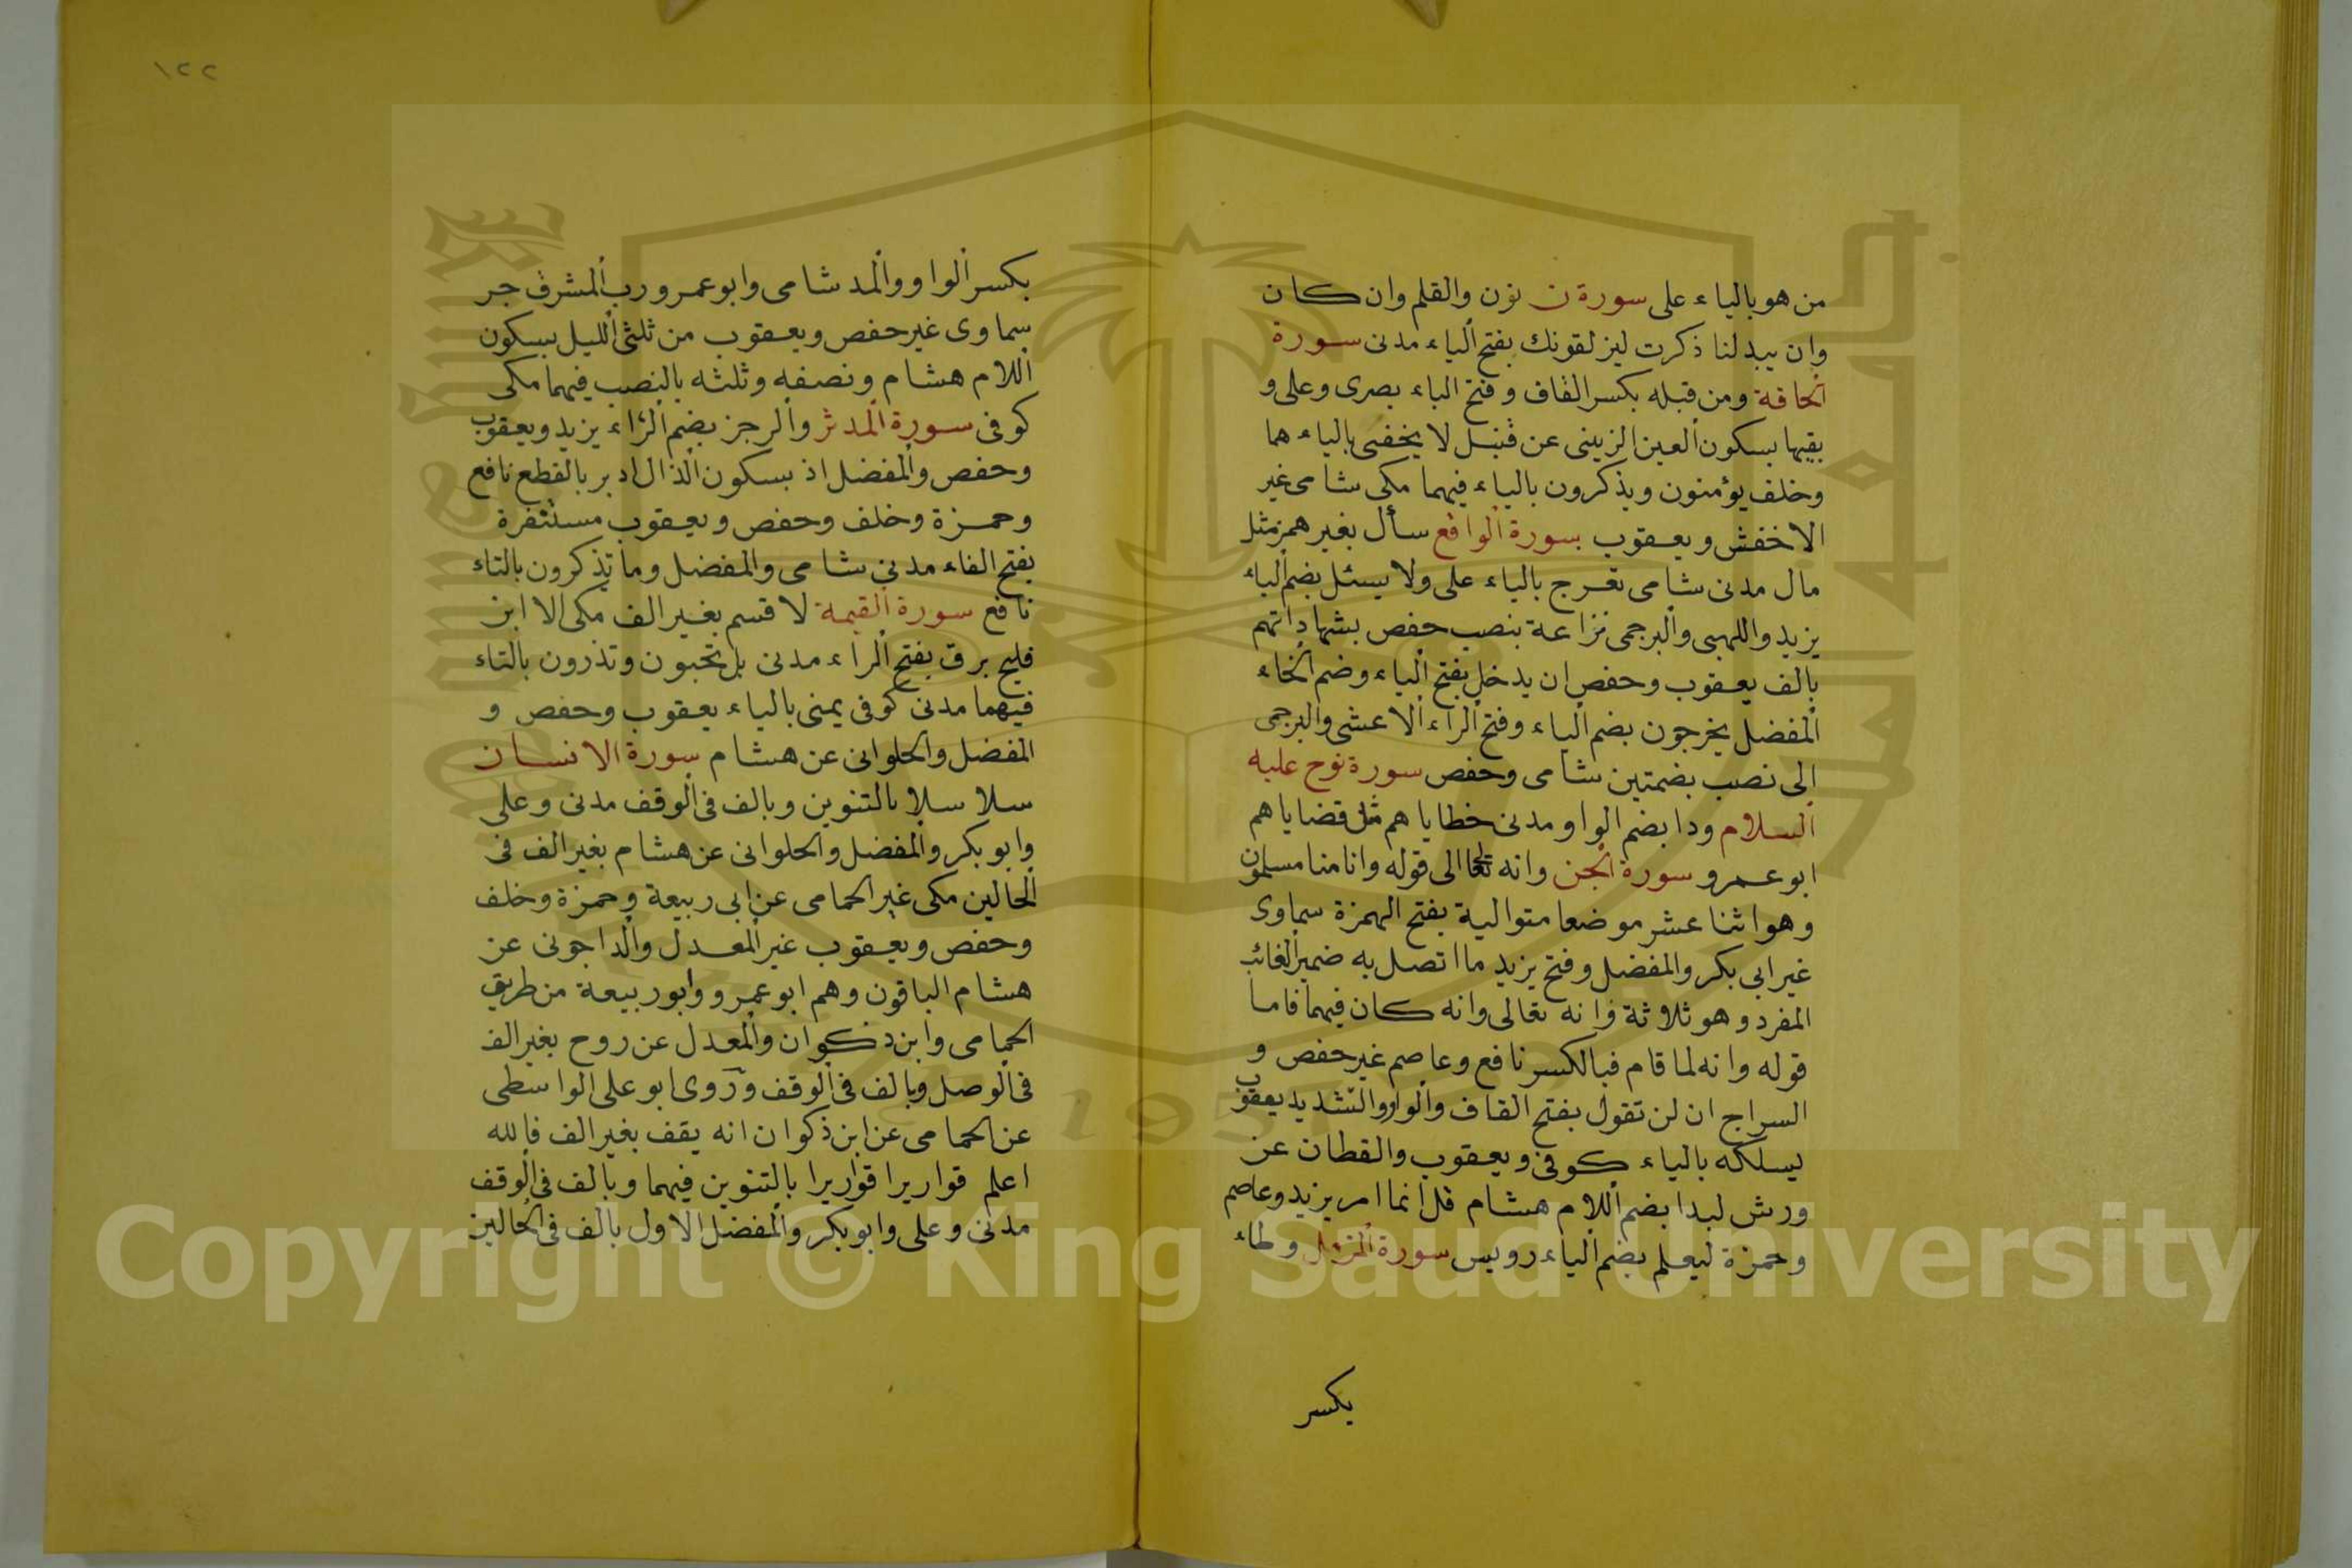 من هو بالياء على سورة ن نون والقلم وان كان
وان يبدلنا ذكرت ليزلقونك بفتح الياء مدنى سورة
الحاقة ومن قبله بكسر القاف وفتح الباء بصرى وعلى و
بقيها بسكون العين الزينبى عن قنبل لا يخفى بالياء هما
وخلف يؤمنون ويذكرون بالياء فيهما مكى شامى غير
الاخفش ويعقوب سورة الواقع سأل بغير همز مثل
مال مدنى شامى تعرج بالياء على ولا يسئل بضم الياء
يزيد واللهبى والبرجمى نزاعة بنصب حفص بشهاداتهم
بالف يعقوب وحفص ان يدخل بفتح الياء وضم الخاء
المفضل يخرجون بضم الياء وفتح الراء الاعشى والبرجمى
الى نصب بضمتين شامى وحفص سورة نوح عليه
السلام ودا بضم الواو مدنى خطاياهم مثل قضاياهم
ابو عمرو سورة الجن وانه تعالى الى قوله وانا منا مسلمون
وهو اثنا عشر موضعا متوالية بفتح الهمزة سماوى
غير ابى بكر والمفضل وفتح يزيد ما اتصل به ضمير الغائب
المفرد وهو ثلاثة فانه تعالى وانه كان فيهما فاما
قوله وانه لما قام فبالكسر نافع وعاصم غير حفص و
السراج ان لن تقول بفتح القاف والواو والتشديد يعقوب
يسلكه بالياء كوفى ويعقوب والقطان عن
ورش لبدا بضم اللام هشام قل انما امر يزيد وعاصم
وحمزة ليعلم بضم الياء رويس سورة المزمل وطاء
بكسر
١٢٢
بكسر الواو والمد شامى وابو عمرو رب المشرق جر
سماوى غير حفص ويعقوب من ثلثى الليل بسكون
اللام هشام ونصفه وثلثه بالنصب فيهما مكى
كوفى سورة المدثر والرجز بضم الراء يزيد ويعقوب
وحفص والمفضل اذ بسكون الذال ادبر بالقطع نافع
وحمزة وخلف وحفص ويعقوب مستنفرة
بفتح الفاء مدنى شامى والمفضل وما تذكرون بالتاء
نافع سورة القيمة لا قسم بغير الف مكى الا ابن
فليح برق بفتح الراء مدنى بل تحبون وتذرون بالتاء
فيهما مدنى كوفى يمنى بالياء يعقوب وحفص و
المفضل والحلوانى عن هشام سورة الانسان
سلاسلا بالتنوين وبالف فى الوقف مدنى وعلى
وابو بكر والمفضل والحلوانى عن هشام بغير الف فى
الحالين مكى غير الحمامى عن ابى ربيعة وحمزة وخلف
وحفص ويعقوب غير المعدل والداجونى عن
هشام الباقون وهم ابو عمرو وابو ربيعة من طريق
الحمامى وابن ذكوان والمعدل عن روح بغير الف
فى الوصل وبالف فى الوقف وروى ابو على الواسطى
عن الحمامى عن ابن ذكوان انه يقف بغير الف فالله
اعلم قواريرا قواريرا بالتنوين فيهما وبالف فى الوقف
مدنى وعلى وابو بكر والمفضل الاول بالف فى الحالين
1957
Copyright © King Saud University